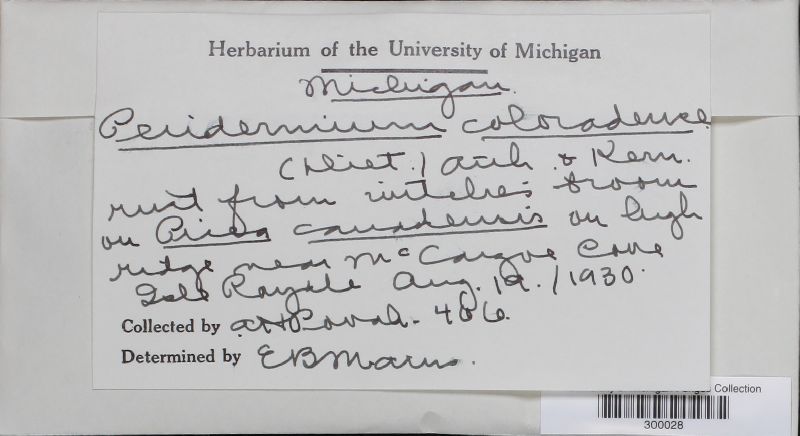 Herbarium of the University of Michigan
Michigan.
Peridermium coloradense
(Diet.) Arth. & Kern.
rust from witches broom
on Picea canadensis on high
ridge near McCargoe Cove
Isle Royale Aug. 19./1930.
Collected by AHPovah. 406.
Determined by EBMains.
Collection
300028